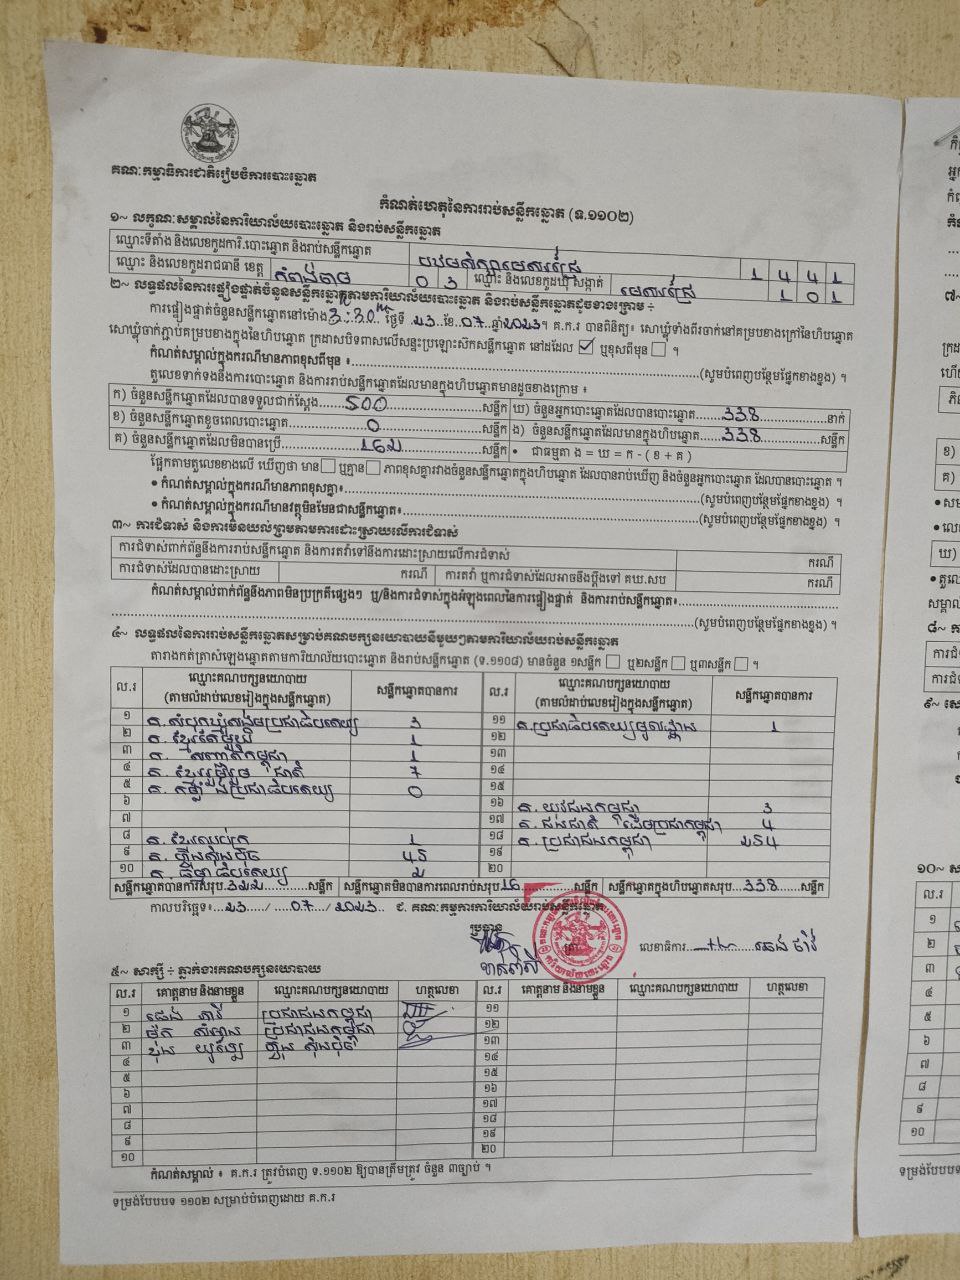 គណៈកម្មាធិការជាតិរៀបចំការបោះឆ្នោត
កំណត់ហេតុនៃការរាប់សន្លឹកឆ្នោត (ទ.១១០២)
១~ លក្ខណៈសម្គាល់នៃការិយាល័យបោះឆ្នោត និងរាប់សន្លឹកឆ្នោត
ឈ្មោះទីតាំង និងលេខកូដការិ.បោះឆ្នោត និងរាប់សន្លឹកឆ្នោត 1 4 4 1
ឈ្មោះ និងលេខកូដរាជធានី ខេត្ត កំពង់ចាម 0 3 ឈ្មោះ និងលេខកូដឃុំ សង្កាត់ មេសរជ្រៃ 1 0 1
២~ លទ្ធផលនៃការផ្ទៀងផ្ទាត់ចំនួនសន្លឹកឆ្នោត តាមការិយាល័យបោះឆ្នោត និងរាប់សន្លឹកឆ្នោតដូចខាងក្រោម ÷
ការផ្ទៀងផ្ទាត់ចំនួនសន្លឹកឆ្នោតនៅម៉ោង 3:30 ថ្ងៃទី 23 ខែ 07 ឆ្នាំ 2023 ។ គ.ក.រ បានពិនិត្យ៖ សោឃ្លុំទាំងពីរចាក់នៅគម្របខាងក្រៅនៃហិបឆ្នោត
សោឃ្លុំចាក់ភ្ជាប់គម្របខាងក្នុងនៃហិបឆ្នោត ក្រដាសបិទពាសលើសន្ទះប្រឡោះស៊កសន្លឹកឆ្នោត នៅដដែល ☑ ឬខុសពីមុន ☐ ។
កំណត់សម្គាល់ក្នុងករណីមានភាពខុសពីមុន ៖ (សូមបំពេញបន្ថែមផ្នែកខាងខ្នង) ។
តួលេខទាក់ទងនឹងការបោះឆ្នោត និងការរាប់សន្លឹកឆ្នោតដែលមានក្នុងហិបឆ្នោតមានដូចខាងក្រោម ៖
ក) ចំនួនសន្លឹកឆ្នោតដែលបានទទួលជាក់ស្តែង 500 សន្លឹក ឃ) ចំនួនអ្នកបោះឆ្នោតដែលបានបោះឆ្នោត 338 នាក់
ខ) ចំនួនសន្លឹកឆ្នោតខូចពេលបោះឆ្នោត 0 សន្លឹក ង) ចំនួនសន្លឹកឆ្នោតដែលមានក្នុងហិបឆ្នោត 338 សន្លឹក
គ) ចំនួនសន្លឹកឆ្នោតដែលមិនបានប្រើ 162 សន្លឹក • ជាធម្មតា ង = ឃ = ក - ( ខ + គ )
ផ្អែកតាមតួលេខខាងលើ ឃើញថា មាន ☐ ឬគ្មាន ☐ ភាពខុសគ្នារវាងចំនួនសន្លឹកឆ្នោតក្នុងហិបឆ្នោត ដែលបានរាប់ឃើញ និងចំនួនអ្នកបោះឆ្នោត ដែលបានបោះឆ្នោត ។
• កំណត់សម្គាល់ក្នុងករណីមានភាពខុសគ្នា៖ (សូមបំពេញបន្ថែមផ្នែកខាងខ្នង) ។
• កំណត់សម្គាល់ក្នុងករណីមានវត្ថុមិនមែនជាសន្លឹកឆ្នោត៖ (សូមបំពេញបន្ថែមផ្នែកខាងខ្នង) ។
៣~ ការជំទាស់ និងការមិនយល់ព្រមតាមការដោះស្រាយលើការជំទាស់
ការជំទាស់ពាក់ព័ន្ធនឹងការរាប់សន្លឹកឆ្នោត និងការតវ៉ាទៅនឹងការដោះស្រាយលើការជំទាស់ ករណី
ការជំទាស់ដែលបានដោះស្រាយ ករណី ការតវ៉ា ឬការជំទាស់ដែលអាចនឹងប្តឹងទៅ គឃ.សប ករណី
កំណត់សម្គាល់ពាក់ព័ន្ធនឹងភាពមិនប្រក្រតីផ្សេងៗ ឬ/និងការជំទាស់ក្នុងអំឡុងពេលនៃការផ្ទៀងផ្ទាត់ និងការរាប់សន្លឹកឆ្នោត៖
(សូមបំពេញបន្ថែមផ្នែកខាងខ្នង) ។
៤~ លទ្ធផលនៃការរាប់សន្លឹកឆ្នោតសម្រាប់គណបក្សនយោបាយនីមួយៗតាមការិយាល័យរាប់សន្លឹកឆ្នោត
តារាងកត់ត្រាសំឡេងឆ្នោតតាមការិយាល័យបោះឆ្នោត និងរាប់សន្លឹកឆ្នោត (ទ.១១០៨) មានចំនួន ១សន្លឹក ☐ ឬ២សន្លឹក ☐ ឬ៣សន្លឹក ☐ ។
ល.រ ឈ្មោះគណបក្សនយោបាយ (តាមលំដាប់លេខរៀងក្នុងសន្លឹកឆ្នោត) សន្លឹកឆ្នោតបានការ ល.រ ឈ្មោះគណបក្សនយោបាយ (តាមលំដាប់លេខរៀងក្នុងសន្លឹកឆ្នោត) សន្លឹកឆ្នោតបានការ
១ គ.សំបុកឃ្មុំសង្គមប្រជាធិបតេយ្យ 3 ១១ គ.ប្រជាធិបតេយ្យមូលដ្ឋាន 1
២ គ. ខ្មែរតែមួយ 1 ១២
៣ គ. សញ្ជាតិកម្ពុជា 1 ១៣
៤ គ. ខ្មែររួបរួមជាតិ 7 ១៤
៥ គ. កម្លាំងប្រជាធិបតេយ្យ 0 ១៥
៦ ១៦ គ. យុវជនកម្ពុជា 3
៧ ១៧ គ. ជនជាតិដើមប្រជាកម្ពុជា 4
៨ គ. ខ្មែរឈប់ក្រ 1 ១៨ គ. ប្រជាជនកម្ពុជា 254
៩ គ. ហ្វ៊ុនស៊ិនប៉ិច 45 ១៩
១០ គ. ធម្មាធិបតេយ្យ 2 ២០
សន្លឹកឆ្នោតបានការសរុប 322 សន្លឹក សន្លឹកឆ្នោតមិនបានការពេលរាប់សរុប 16 សន្លឹក សន្លឹកឆ្នោតក្នុងហិបឆ្នោតសរុប 338 សន្លឹក
កាលបរិច្ឆេទ៖ 23 / 07 / 2023 ជ. គណៈកម្មការការិយាល័យរាប់សន្លឹកឆ្នោត
ប្រធាន
លេខាធិការ
៥~ សាក្សី ÷ ភ្នាក់ងារគណបក្សនយោបាយ
ល.រ គោត្តនាម និងនាមខ្លួន ឈ្មោះគណបក្សនយោបាយ ហត្ថលេខា ល.រ គោត្តនាម និងនាមខ្លួន ឈ្មោះគណបក្សនយោបាយ ហត្ថលេខា
១ ប្រជាជនកម្ពុជា ១១
២ ប្រជាជនកម្ពុជា ១២
៣ ហ្វ៊ុនស៊ិនប៉ិច ១៣
៤ ១៤
៥ ១៥
៦ ១៦
៧ ១៧
៨ ១៨
៩ ១៩
១០ ២០
កំណត់សម្គាល់ ៖ គ.ក.រ ត្រូវបំពេញ ទ.១១០២ ឱ្យបានត្រឹមត្រូវ ចំនួន ៣ច្បាប់ ។
ទម្រង់បែបបទ ១១០២ សម្រាប់បំពេញដោយ គ.ក.រ